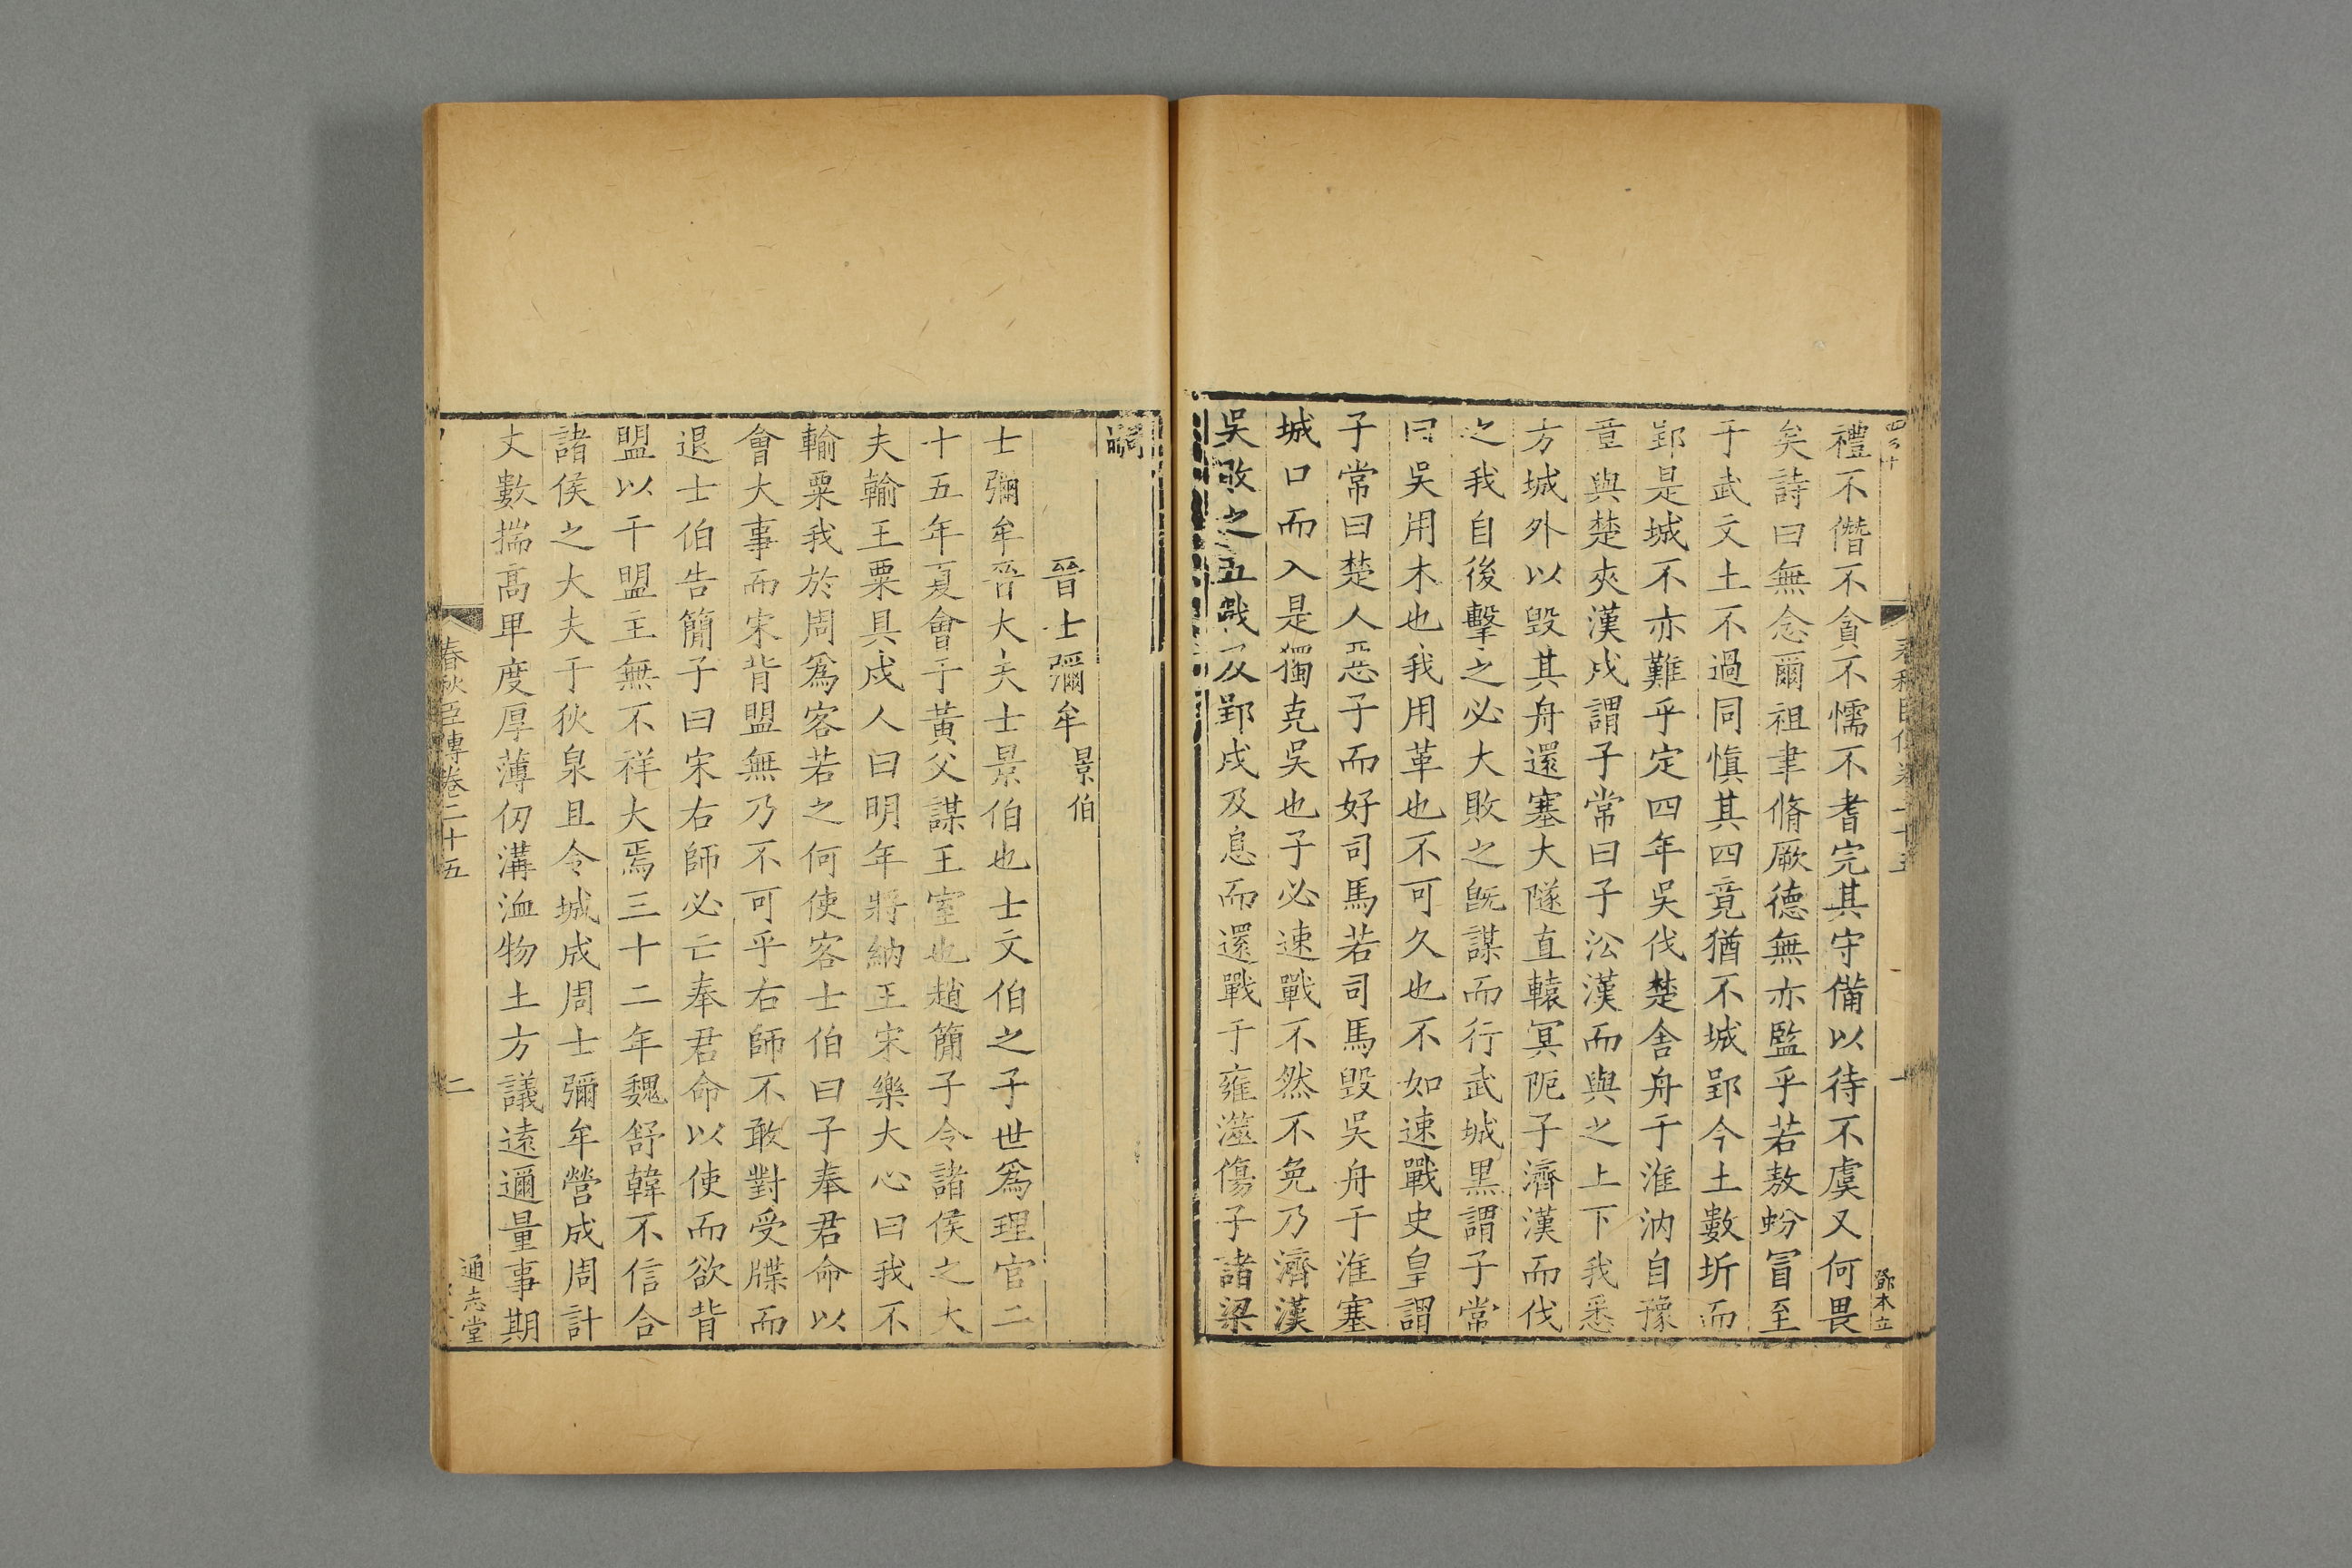 禮不僭不貪不懦不耆完其守備以待不虞又何畏
矣詩曰無念爾祖聿脩厥德無亦監乎若敖蚡冒至
于武文土不過同愼其四竟猶不城郢今土數圻而
郢是城不亦難乎定四年吳伐楚舍舟于淮汭自豫
章與楚夾漢戍謂子常曰子㳂漢而與之上下我悉
方城外以毀其舟還塞大隧直轅冥阨子濟漢而伐
之我自後擊之必大敗之旣謀而行武城黑謂子常
曰吳用木也我用革也不可久也不如速戰史皇謂
子常曰楚人惡子而好司馬若司馬毀吳舟于淮塞
城口而入是獨克吳也子必速戰不然不免乃濟漢
吳敗之五戰及郢戍及息而還戰于雍澨傷子諸梁
鄧本立
嗣
晉士彌牟景伯
士彌牟晉大夫士景伯也士文伯之子世爲理官二
十五年夏會于黃父謀王室也趙簡子令諸侯之大
夫輸王粟具戍人曰明年將納王宋樂大心曰我不
輸粟我於周爲客若之何使客士伯曰子奉君命以
會大事而宋背盟無乃不可乎右師不敢對受牒而
退士伯告簡子曰宋右師必亡奉君命以使而欲背
盟以干盟主無不祥大焉三十二年魏舒韓不信合
諸侯之大夫于狄泉且令城成周士彌牟營成周計
丈數揣高卑度厚薄仞溝洫物土方議遠邇量事期
春秋臣傳卷二十五
二
通志堂